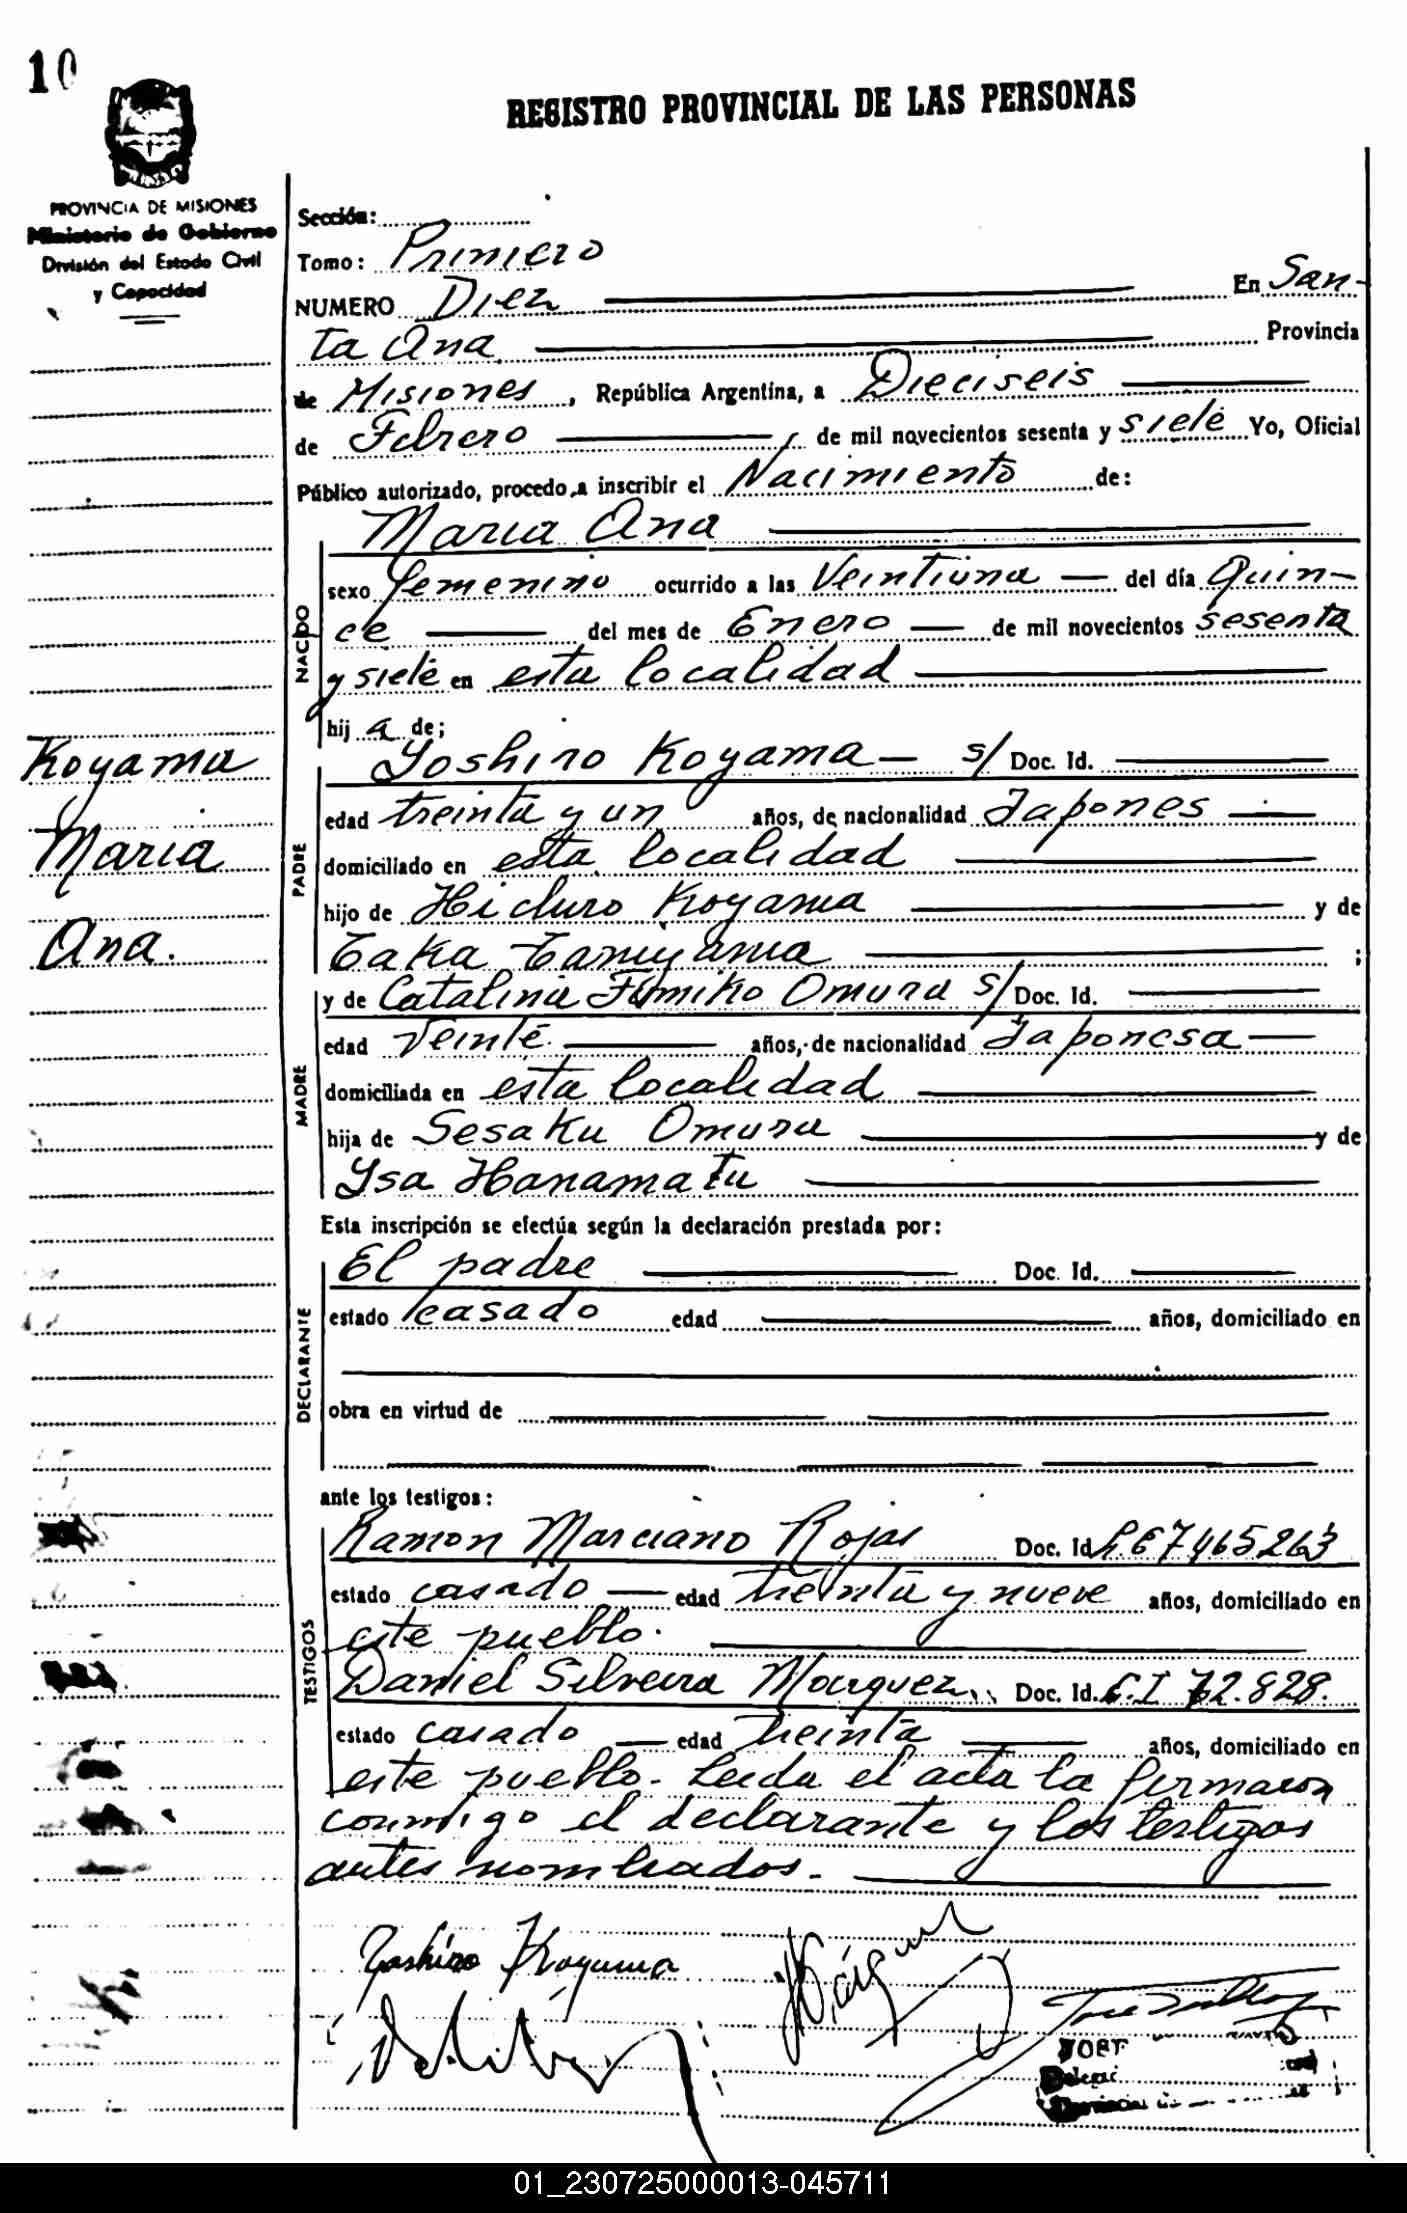 10
REGISTRO PROVINCIAL DE LAS PERSONAS
PROVINCIA DE MISIONES
Ministerio de Gobierno
División del Estado Civil
y Capacidad
Sección:
Tomo: Primero
NUMERO Diez En San-
ta Ana Provincia
de Misiones, República Argentina, a Dieciseis
de Febrero, de mil novecientos sesenta y siete Yo, Oficial
Público autorizado, procedo a inscribir el Nacimiento de:
Maria Ana
NACIDO
sexo femenino ocurrido a las Veintiuna del día Quin-
ce del mes de Enero de mil novecientos sesenta
y siete en esta localidad
hij a de;
Koyama
Maria
Ana.
PADRE
Yoshiro Koyama s/ Doc. Id.
edad treinta y un años, de nacionalidad Japones
domiciliado en esta localidad
hijo de Koyama y de
Taka ;
MADRE
y de Catalina Fumiko Omura s/ Doc. Id.
edad Veinte años, de nacionalidad Japonesa
domiciliada en esta localidad
hija de Sesaku Omura y de
Ysa Hanamatu
Esta inscripción se efectúa según la declaración prestada por:
DECLARANTE
El padre Doc. Id.
estado casado edad años, domiciliado en
obra en virtud de
ante los testigos:
TESTIGOS
Ramon Marciano Rojas Doc. Id. 7465263
estado casado edad treinta y nueve años, domiciliado en
este pueblo.
Daniel Silveira Marquez Doc. Id. C.I 72.828.
estado casado edad treinta años, domiciliado en
este pueblo. Leida el acta la firmaron
conmigo el declarante y los testigos
antes nombrados.-
Yoshiro Koyama
01_230725000013-045711